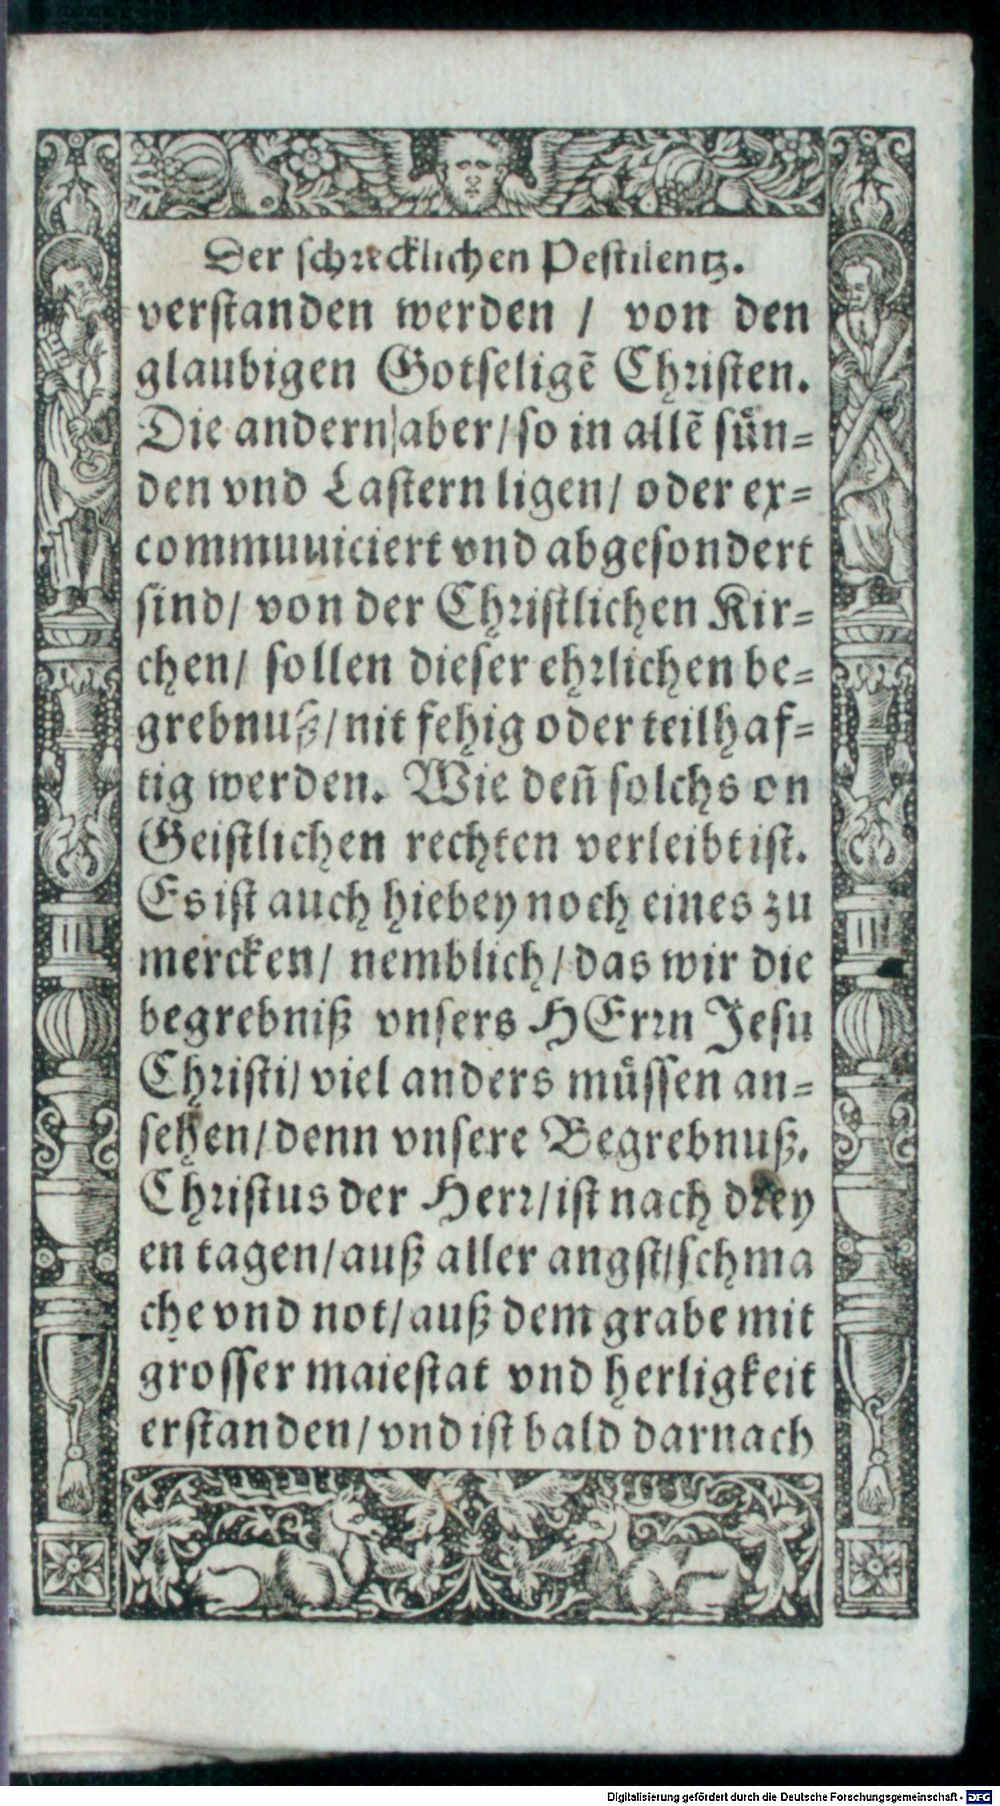 Der schrecklichen Pestilentz.
verstanden werden / von den
glaubigen Gotseligẽ Christen.
Die andern aber / so in allẽ sün=
den vnd Lastern ligen / oder ex=
commuuiciert vnd abgesondert
sind / von der Christlichen Kir=
chen / sollen dieser ehrlichen be=
grebnuß / nit fehig oder teilhaf=
tig werden. Wie deñ solchs on
Geistlichen rechten verleibt ist.
Es ist auch hiebey noch eines zu
mercken / nemblich / das wir die
begrebniß vnsers HErrn Jesu
Christi / viel anders müssen an=
sehen / denn vnsere Begrebnuß.
Christus der Herr / ist nach drey
en tagen / auß aller angst / schma
che vnd not / auß dem grabe mit
grosser maiestat vnd herligkeit
erstanden / vnd ist bald darnach
Digitalisierung gefördert durch die Deutsche Forschungsgemeinschaft - DFG